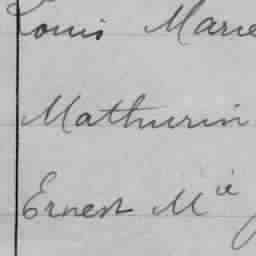 Louis Marie
Mathurin
Ernest Mie